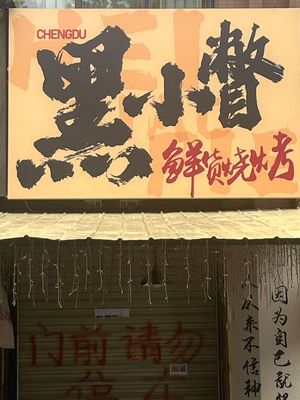 CHENGDU
黑小瞥
鲜货烧烤
门前请勿
停车
人从来不信神
因为自己就